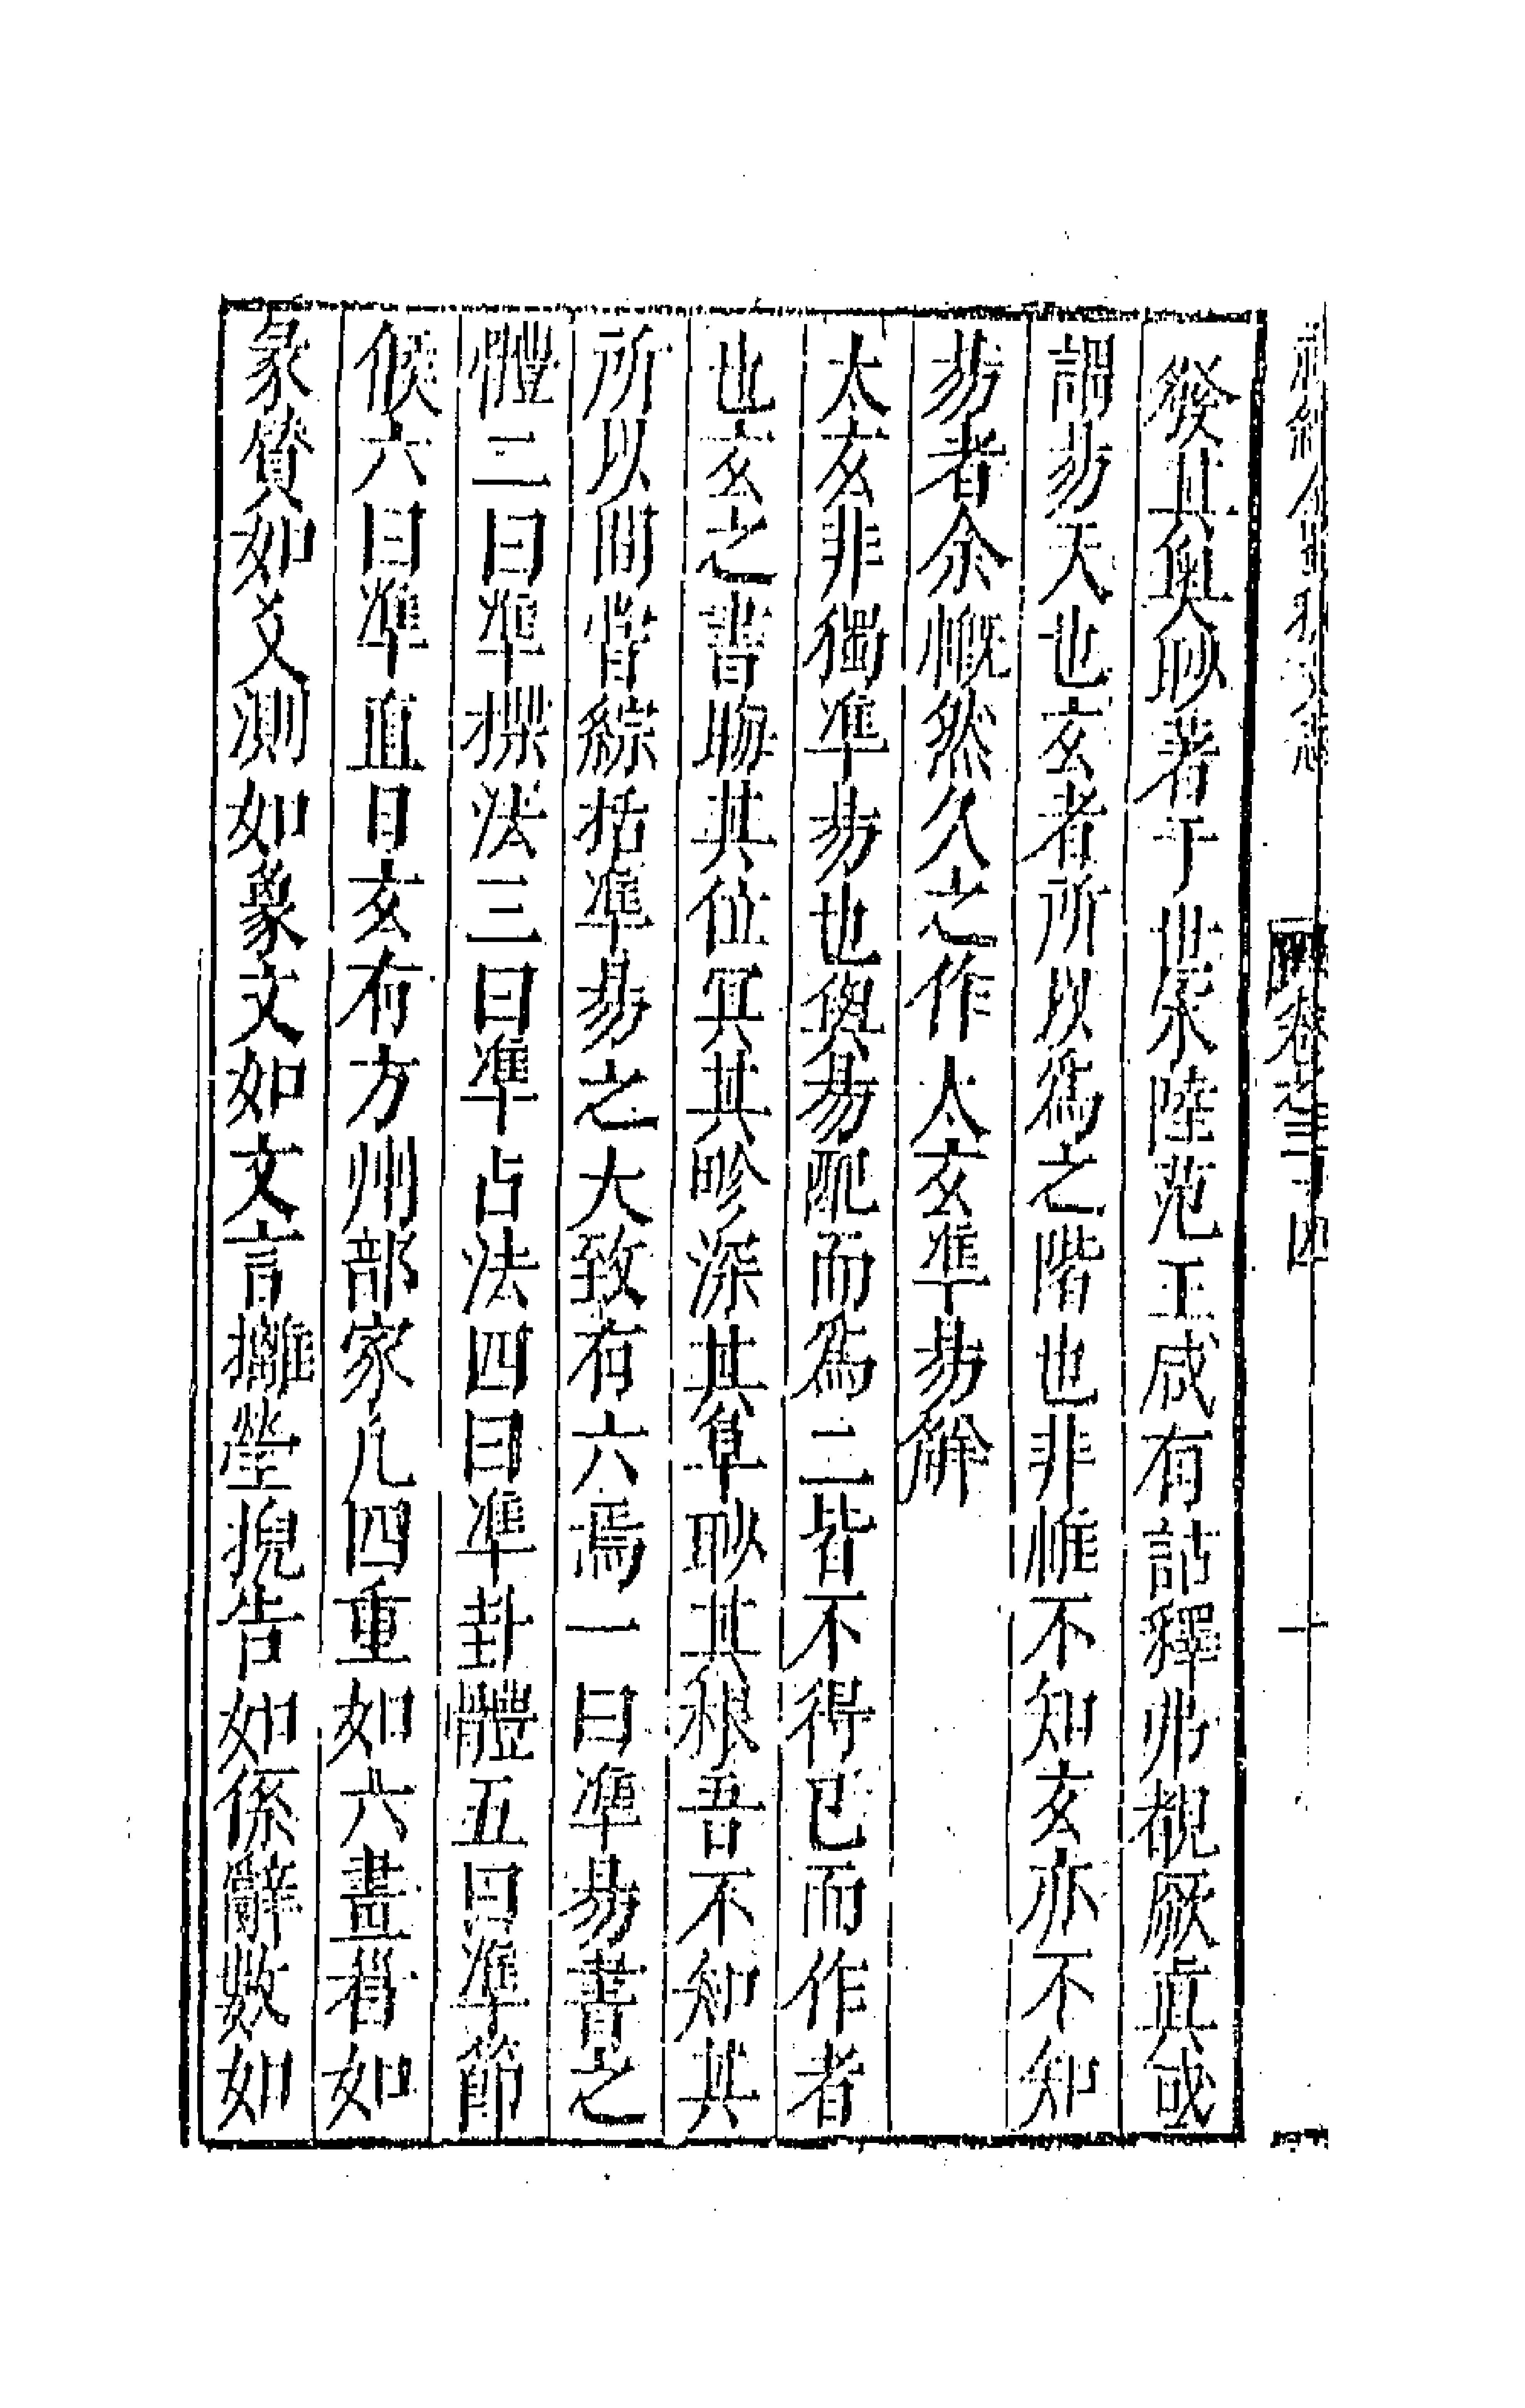 卷之三十四
發其奧眇著于世宋陸范王咸有詁釋弗覩厥真或
謂易天也玄者所以爲之階也非惟不知玄亦不知
易者余慨然久之作太玄準易解
太玄非獨準易也與易配而爲二皆不得已而作者
也玄之書晦其位冥其畛深其阜眇其根吾不知其
所以間嘗綜括準易之大致有六焉一曰準易書之
體二曰準揲法三曰準占法四曰準卦體五曰準節
候六曰準直日玄有方州部家凡四重如六畫首如
彖贊如爻測如象文如文言攡瑩掜告如係辭數如